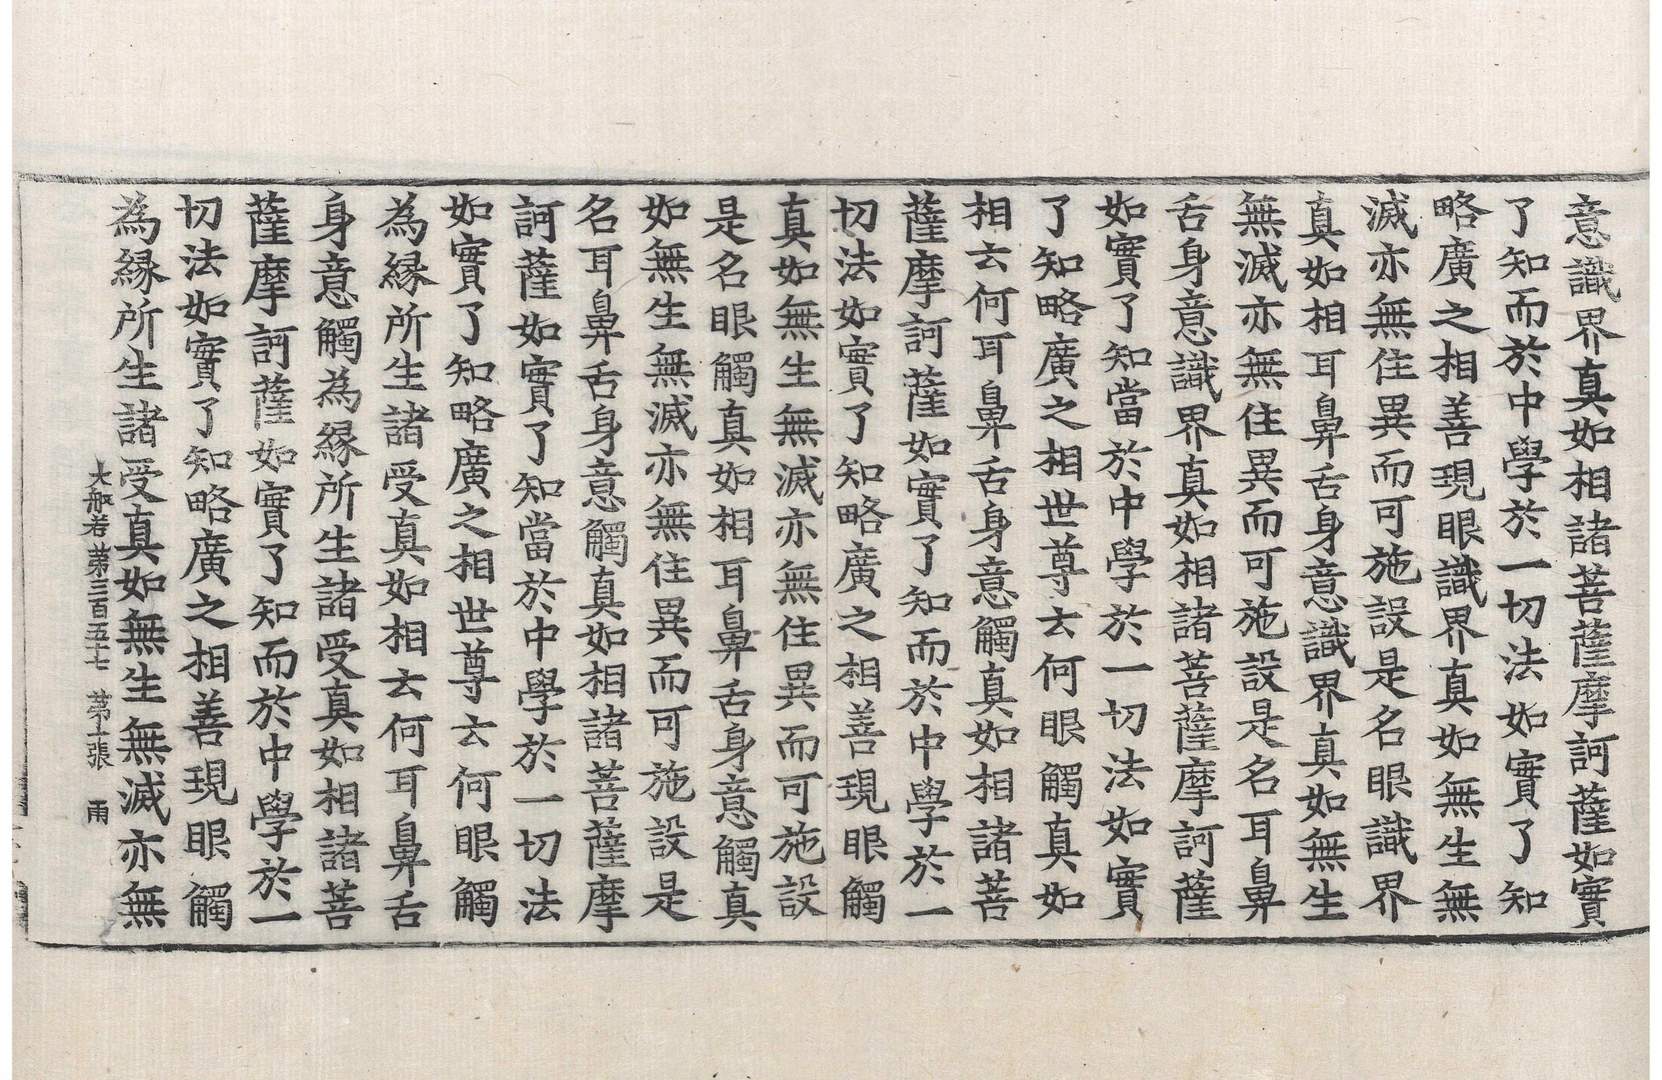 意識界真如相諸菩薩摩訶薩如實
了知而於中學於一切法如實了知
略廣之相善現眼識界真如無生無
滅亦無住異而可施設是名眼識界
真如相耳鼻舌身意識界真如無生
無滅亦無住異而可施設是名耳鼻
舌身意識界真如相諸菩薩摩訶薩
如實了知當於中學於一切法如實
了知略廣之相世尊云何眼觸真如
相云何耳鼻舌身意觸真如相諸菩
薩摩訶薩如實了知而於中學於一
切法如實了知略廣之相善現眼觸
真如無生無滅亦無住異而可施設
是名眼觸真如相耳鼻舌身意觸真
如無生無滅亦無住異而可施設是
名耳鼻舌身意觸真如相諸菩薩摩
訶薩如實了知當於中學於一切法
如實了知略廣之相世尊云何眼觸
為緣所生諸受真如相云何耳鼻舌
身意觸為緣所生諸受真如相諸菩
薩摩訶薩如實了知而於中學於一
切法如實了知略廣之相善現眼觸
為緣所生諸受真如無生無滅亦無
大般若第三百五十七 第十張 雨